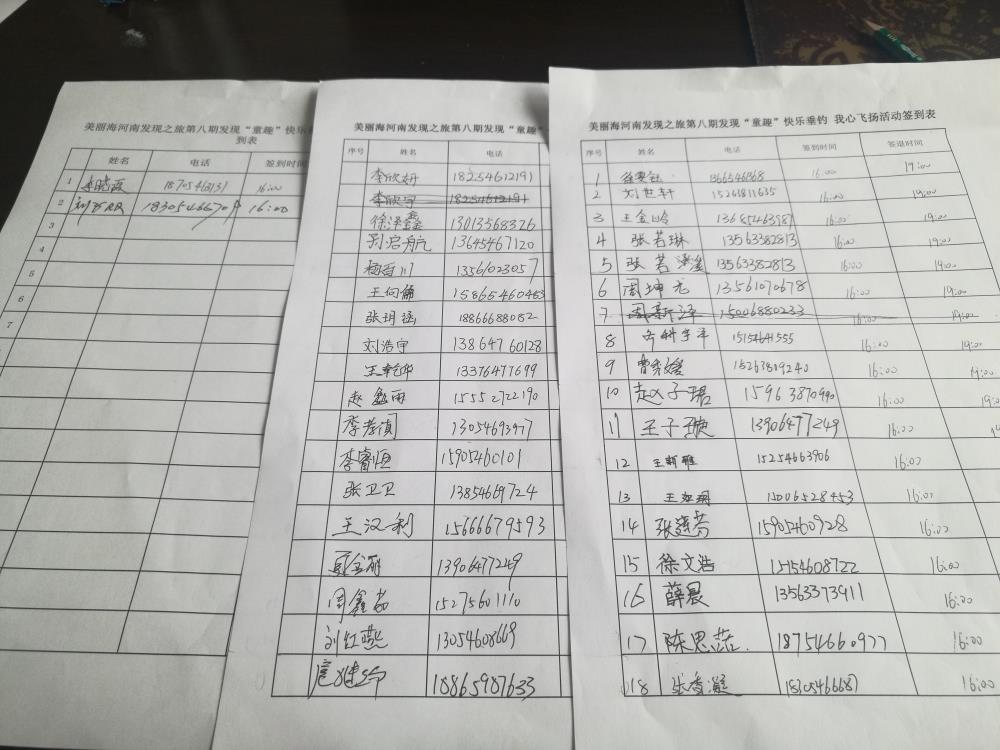 美丽海河南发现之旅第八期发现“童趣”快乐
到表
姓名 电话 签到时间
1 李晓霞 16:00
2 16:00
3
4
5
6
7
美丽海河南发现之旅第八期发现“童趣”
序号 姓名 电话
李欣妍 18254612191
李欣宇 18254612191
徐泽鑫 13013568326
刘启航 13645467120
13561023057
王向儒 15865460483
张玥涵 18866688082
刘浩宇 13864760128
王乾华 13376477699
赵鑫雨 15552722190
李孝侦 13054693977
李睿恒 15905460101
张卫卫 13854669724
王汉利 15666679593
13906477249
周鑫茹 15275601110
刘红燕 13054608669
18865987633
美丽海河南发现之旅第八期发现“童趣”快乐垂钓 我心飞扬活动签到表
序号 姓名 电话 签到时间 签退时间
1 16:00 19:00
2 刘世轩 15261811635 16:00 19:00
3 王金岭 16:00 19:00
4 张若琳 13563382813 16:00 19:00
5 张若溪 13563382813 16:00 19:00
6 周坤龙 13561070678 16:00 19:00
7 周新泽 15006880233 16:00 19:00
8 15154641555 16:00 19:00
9 曹秀媛 15263819240 16:00 19:00
10 赵子珺 15963870990 16:00 19:0
11 王子璇 13906477249 16:00
12 王新雅 15254663906 16:00
13 15006528453 16:00
14 张莲芳 15905460928 16:00
15 徐文浩 15154608722 16:00
16 薛晨 13563373911 16:00
17 陈思蓓 18754660977 16:00
18 张香凝 16:00